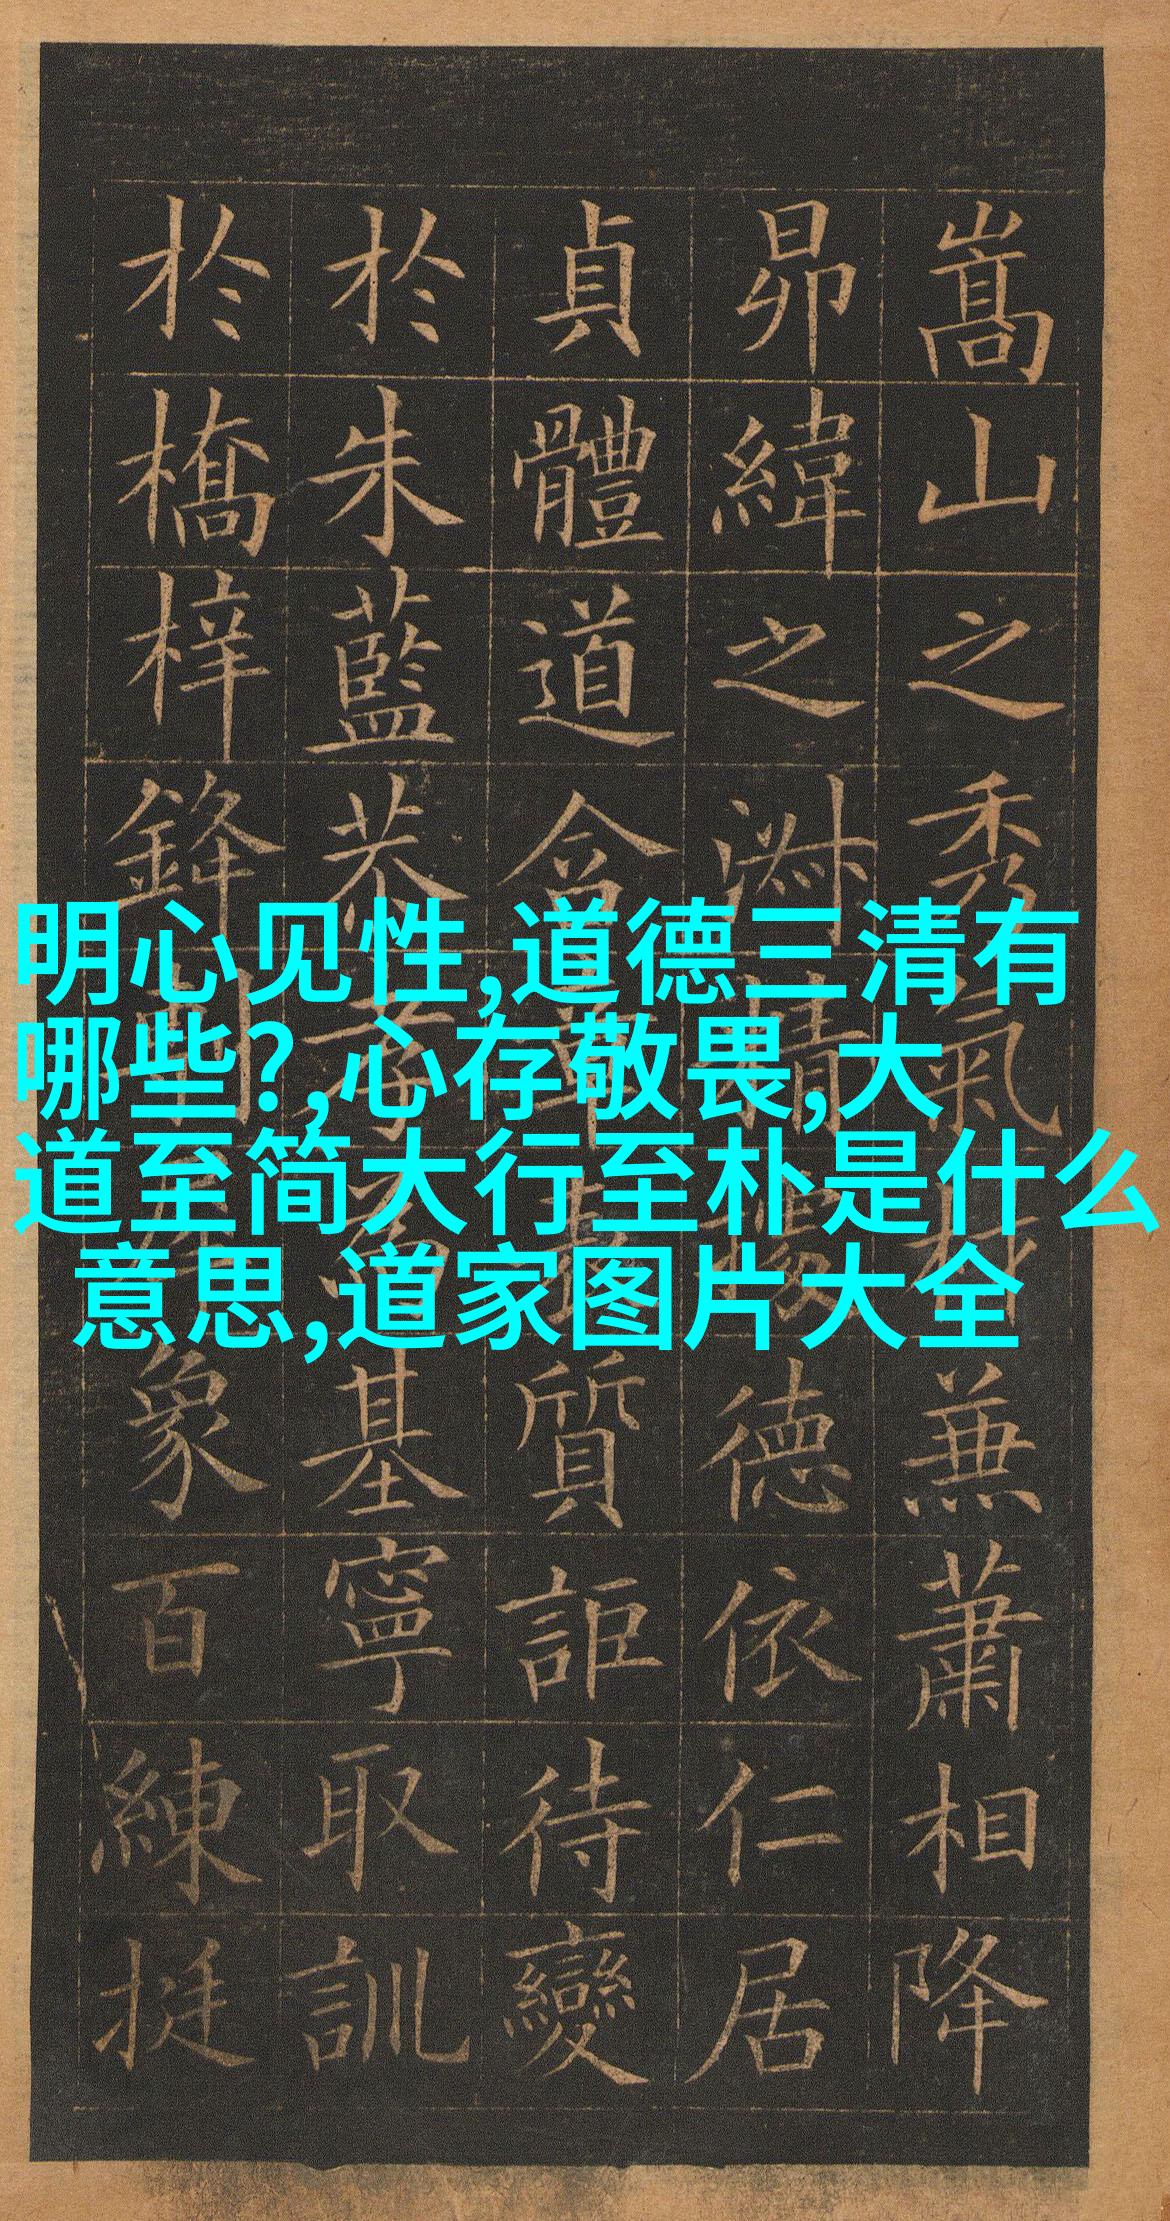 嵩山之秀氣材兼蕭相降
昴緯之淑精據德依仁居
貞體道含章質詎待變
於朱藍恭孝為基寧取訓
於橋梓鋒象百練挺
明心见性,道德三清有
哪些?,心存敬畏,大
道至简大行至朴是什么
意思,道家图片大全